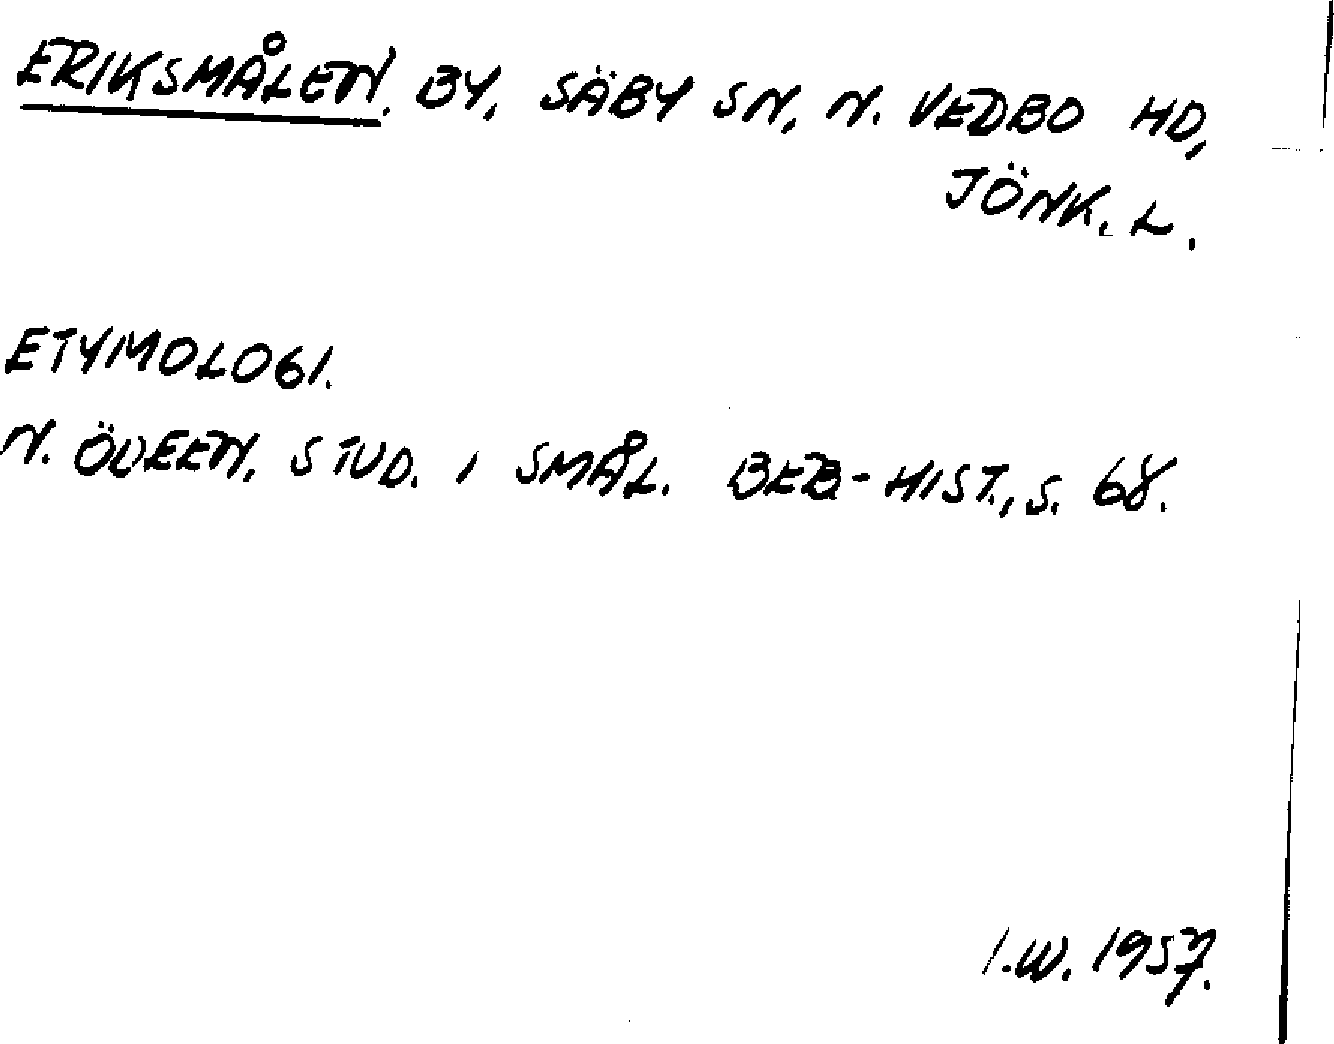 ERIKSMÅLEN. BY, SÄBY SN, N. VEDBO HD,
JÖNK. L.
ETYMOLOGI.
N. ÖDEEN. STUD. I SMÅL. BEB-HIST., S. 68.
I.W. 1957.